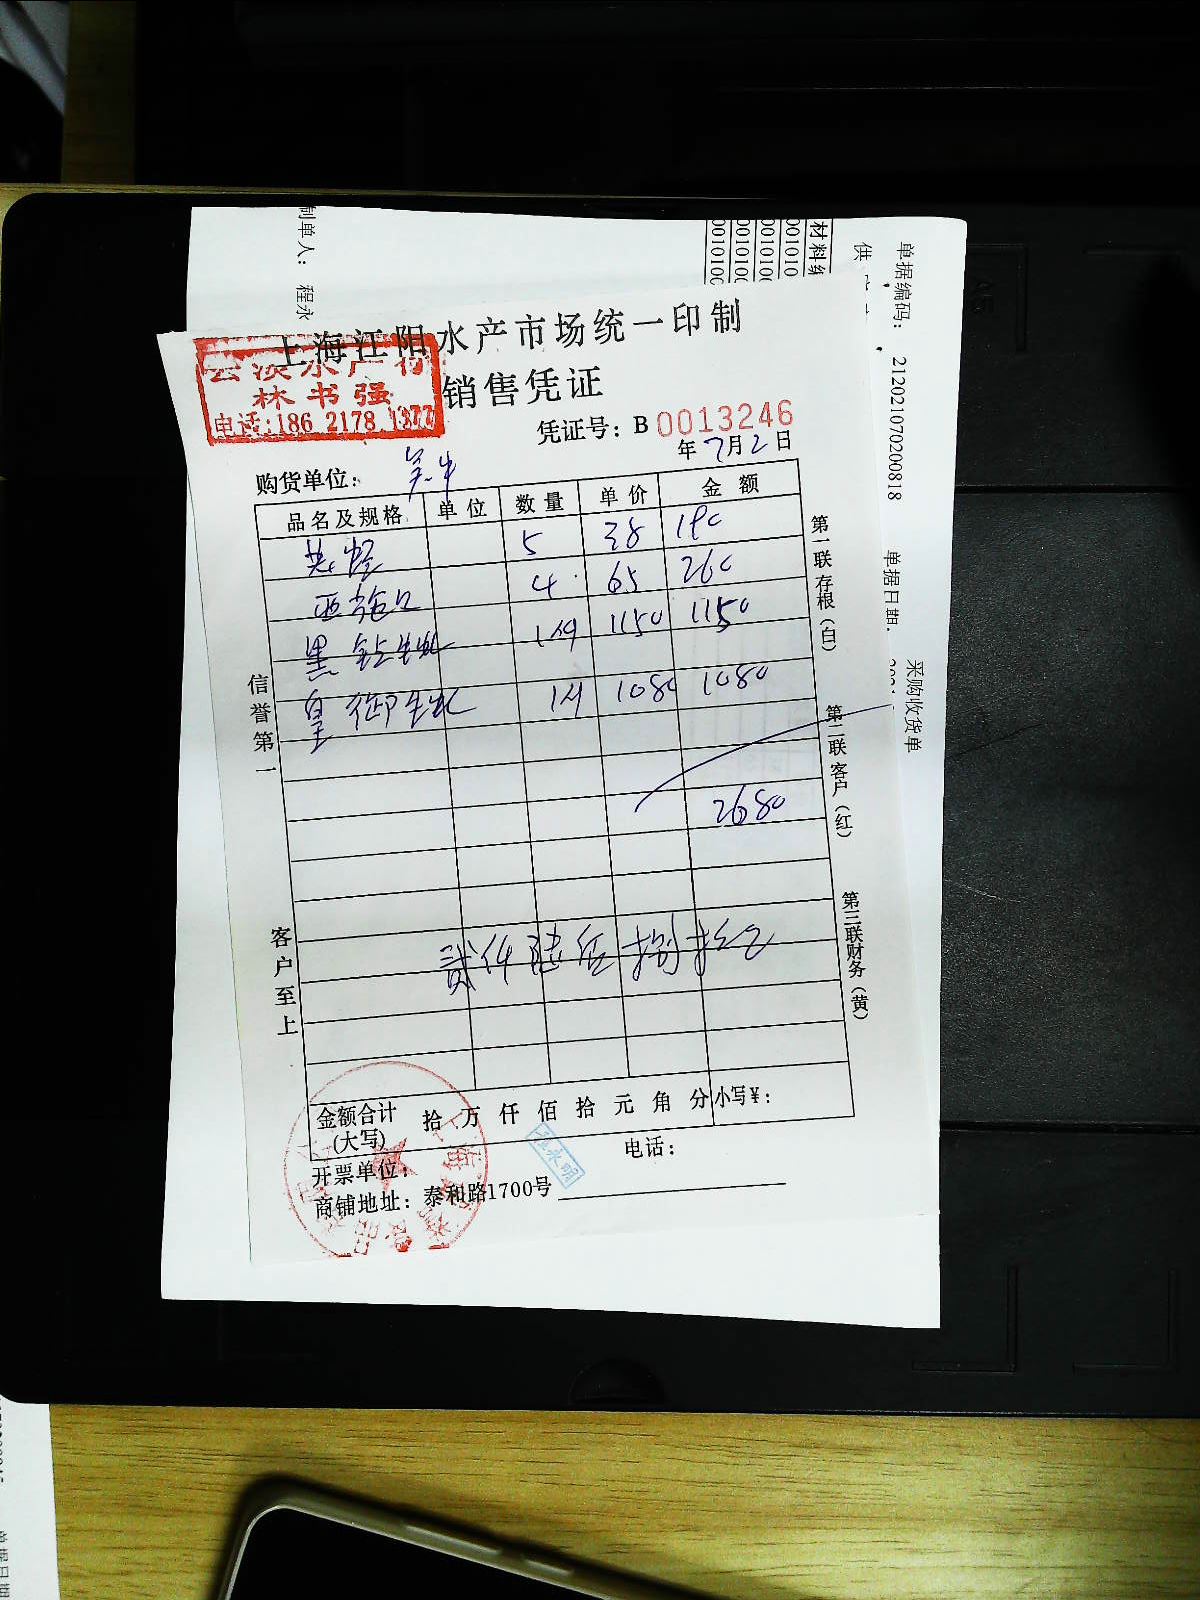 制单人： 程永
材料编
001010
0010100
0010100
0010100
供
单据编码： 212021070200818
单据日期：
采购收货单
上海江阳水产市场统一印制
云淡水产行
林书强
电话:186 2178 1377
销售凭证
凭证号：B 0013246
年7月2日
购货单位：
品名及规格 单位 数量 单价 金额
5 38 190
4 65 260
黑钻生蚝 1件 1150 1150
皇御生蚝 1件 1080 1080
2680
贰仟陆佰捌拾元
信誉第一
客户至上
第一联存根（白）
第二联客户（红）
第三联财务（黄）
金额合计（大写） 拾 万 仟 佰 拾 元 角 分 小写¥：
开票单位： 电话：
商铺地址：泰和路1700号